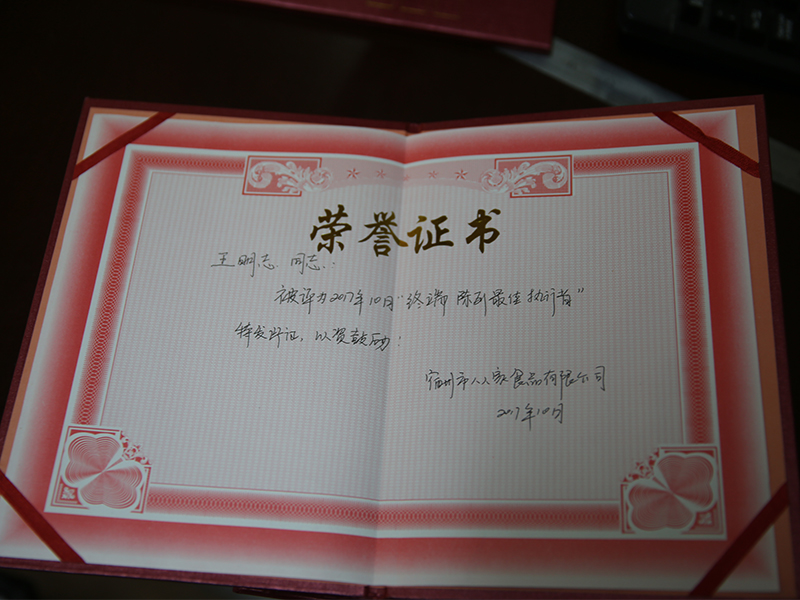 荣誉证书
王明志 同志:
被评为2017年10月“终端陈列最佳执行者”
特发此证,以资鼓励!
宿州市人人家食品有限公司
2017年10月